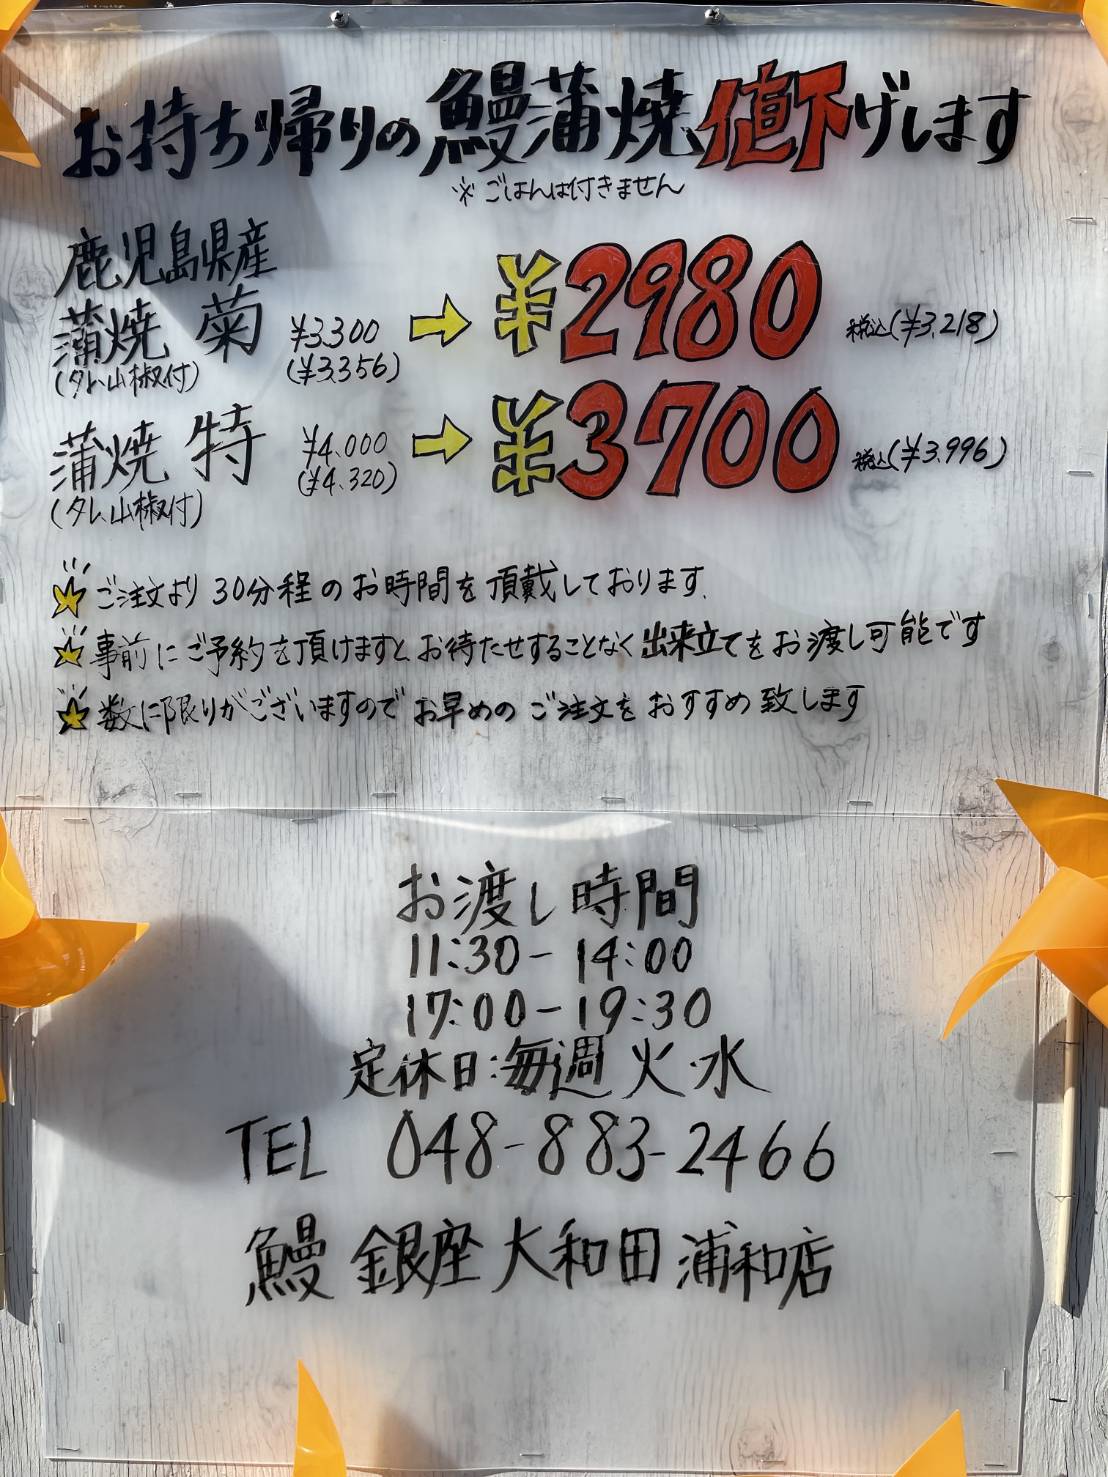 お持ち帰りの鰻蒲焼値下げします
※ごはんは付きません
鹿児島県産
蒲焼 菊 ¥3,300 → ¥2980 税込(¥3,218)
(タレ、山椒付) (¥3,356)
蒲焼 特 ¥4,000 → ¥3700 税込(¥3,996)
(タレ、山椒付) (¥4,320)
ご注文より30分程のお時間を頂戴しております。
事前にご予約を頂けますと、お待たせすることなく出来立てをお渡し可能です
数に限りがございますのでお早めのご注文をおすすめ致します
お渡し時間
11:30-14:00
17:00-19:30
定休日:毎週火・水
TEL 048-883-2466
鰻 銀座大和田 浦和店